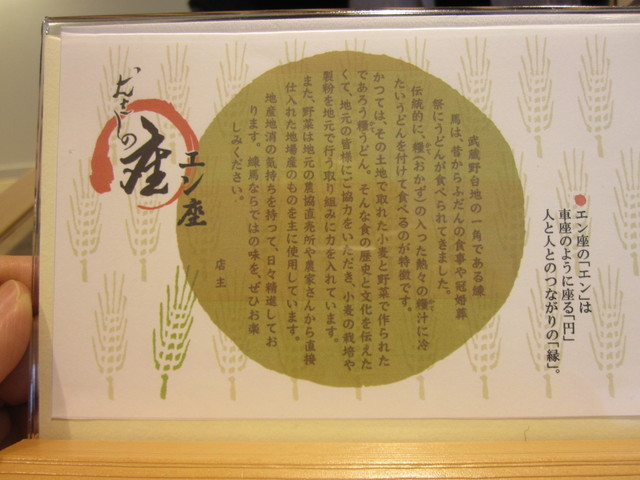 エン座の「エン」は
車座のように座る「円」
人と人とのつながりの「縁」。
武蔵野台地の一角である練
馬は、昔からふだんの食事や冠婚葬
祭にうどんが食べられてきました。
伝統的に、糧(おかず)の入った熱々の糧汁に冷
たいうどんを付けて食べるのが特徴です。
かつては、その土地で取れた小麦と野菜で作られた
であろう糧うどん。そんな食の歴史と文化を伝えた
くて、地元の皆様にご協力をいただき、小麦の栽培や
製粉を地元で行う取り組みに力を入れています。
また、野菜は地元の農協直売所や農家さんから直接
仕入れた地場産のものを主に使用しています。
地産地消の気持ちを持って、日々精進してお
ります。練馬ならではの味を、ぜひお楽
しみください。
店主
エン座
むさしの
座